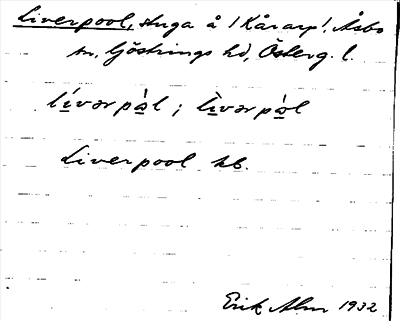 Liverpool, stuga å /Kårarp/. Åsbo
sn, Göstrings hd, Österg. l.
lívərpà̱l ; lìvərpà̱l
Liverpool kb.
Erik Alm 1932